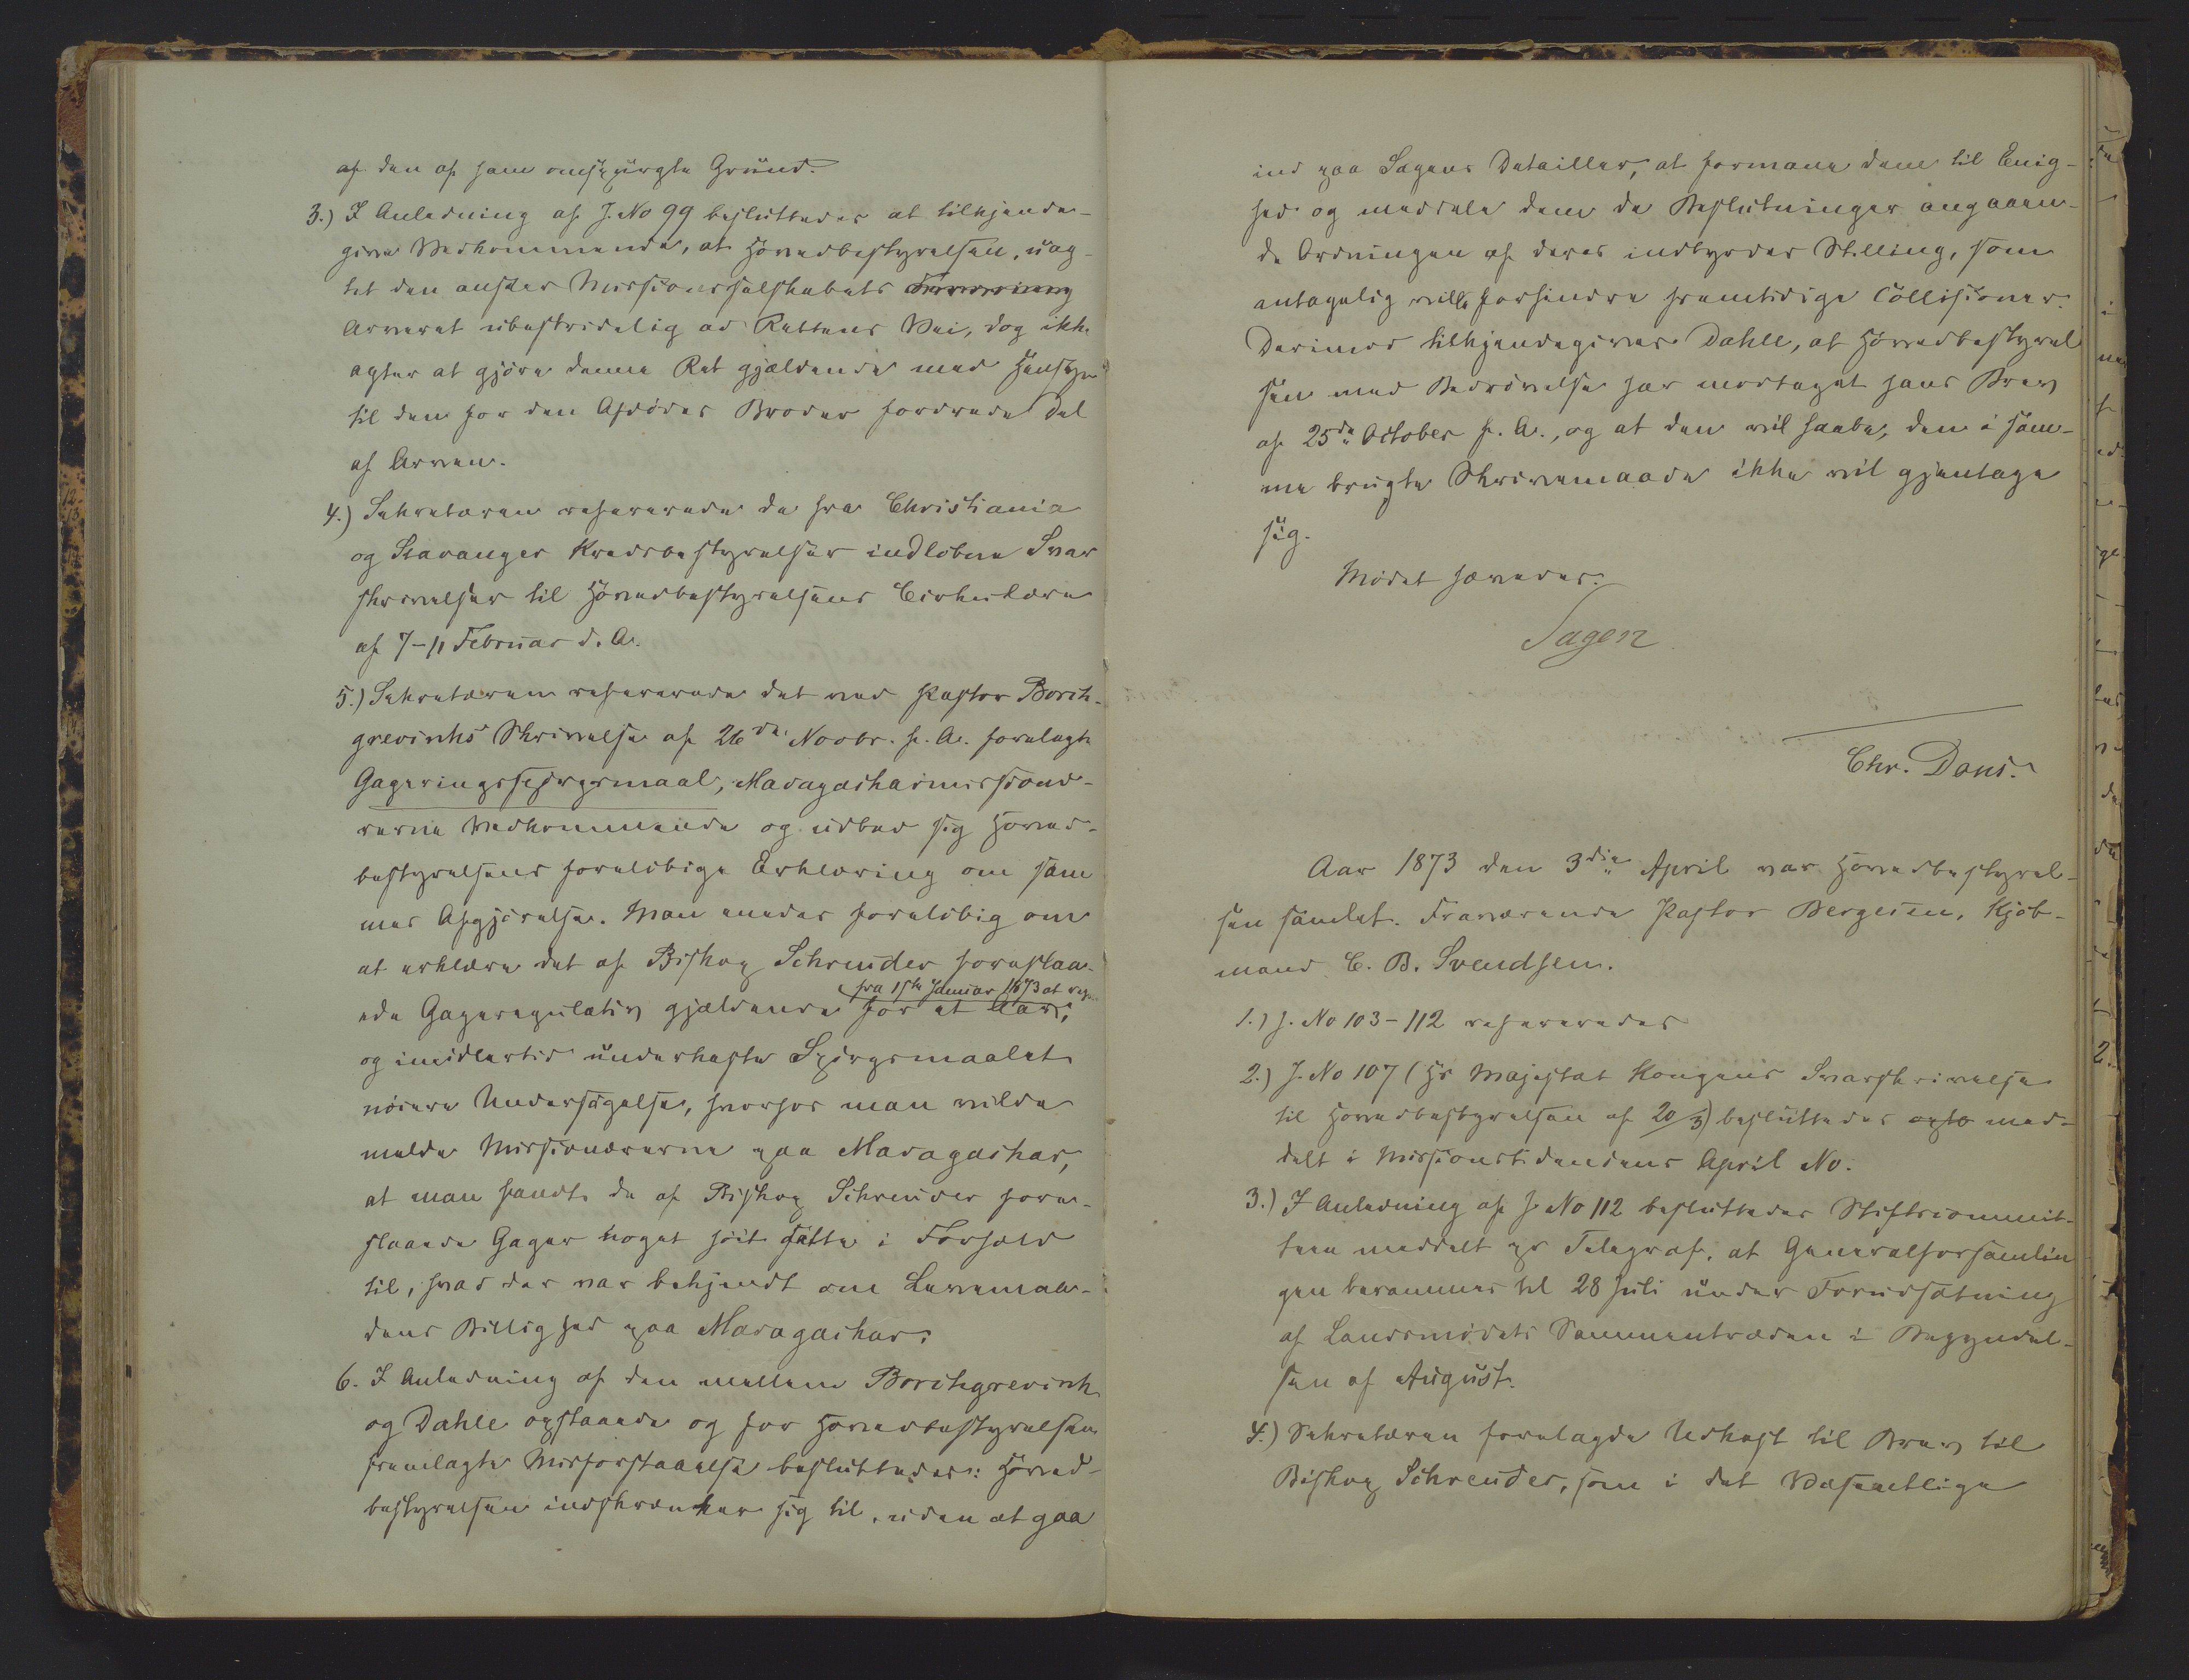 af den af ham omspurgte Grund.
3.) I Anledning af J. No 99 besluttedes at tilkjende-
give Vedkommende, at Hovedbestyrelsen, uag-
tet den anser Missionsselskabets
Arveret ubestridelig ad Rettens Vei, dog ikke
agter at gjöre denne Ret gjældende med Hensyn
til den for den Afdödes Broder fordrede Del
af Arven.
4.) Sekretæren refererede de fra Christiania
og Stavanger Kredsbestyrelser indlöbne Svar
skrivelser til Hovedbestyrelsens Cirkulære
af 7-11 Februar d. A.
5.) Sekretæren refererede det ved Pastor Borch-
grevinks Skrivelse af 26de Novbr. f. A. forelagte
Gageringsspörgsmaal, Madagaskarmissionæ-
rerne Vedkommende og udbad sig Hoved-
bestyrelsens forelöbige Erklæring om sam
mes Afgjörelse. Man enedes forelöbig om
at erklære det af Biskop Schreuder foreslaa-
fra 1ste Januar 1873 at regne
ede Gageregulativ gjældende for et Aar,
og imidlertid underkaste Spörgsmaalet
nöiere Undersögelse, hvorfor man vilde
melde Missionærerne paa Madagaskar,
at man fandt de af Biskop Schreuder fore-
slaaede Gager noget höit satte i Forhold
til, hvad der var bekjendt om Levemaa-
dens Billighed paa Madagaskar.
6. I Anledning af den mellem Borchgrevink
og Dahle opstaaede og for Hovedbestyrelsen
fremlagte Misforstaaelse besluttedes: Hoved-
bestyrelsen indskrænker sig til, uden at gaa
ind paa Sagens Detailler, at formane dem til Enig-
hed og meddele dem de Beslutninger angaaen-
de Ordningen af deres indbyrdes Stilling, som
antagelig ville forhindre fremtidige Collisioner.
Derimod tilkjendegives Dahle, at Hovedbestyrel
sen med Bedrövelse har modtaget hans Brev
af 25de October f. A., og at den vil haabe, den i sam-
me brugte Skrivemaade ikke vil gjentage
sig.
Mödet hævedes.
Sagen
Chr. Dons.
Aar 1873 den 3die April var Hovedbestyrel-
sen samlet. Fraværende Pastor Bergesen, Kjöb-
mand C. B. Svendsen.
1.) J. No 103-112 refereredes
2.) J. No 107 (Hs Majestæt Kongens Svarskrivelse
til Hovedbestyrelsen af 20/3) besluttedes med-
delt i Missionstidendens April No.
3.) I Anledning af J. No 112 besluttedes Stiftscommit-
teen meddelt pr Telegraf, at Generalforsamlin
gen berammes til 28 Juli under Forudsætning
af Landsmödets Sammentræden i Begyndel-
sen af August.
4.) Sekretæren forelagde Udkast til Brev til
Biskop Schreuder, som i det Væsentlige